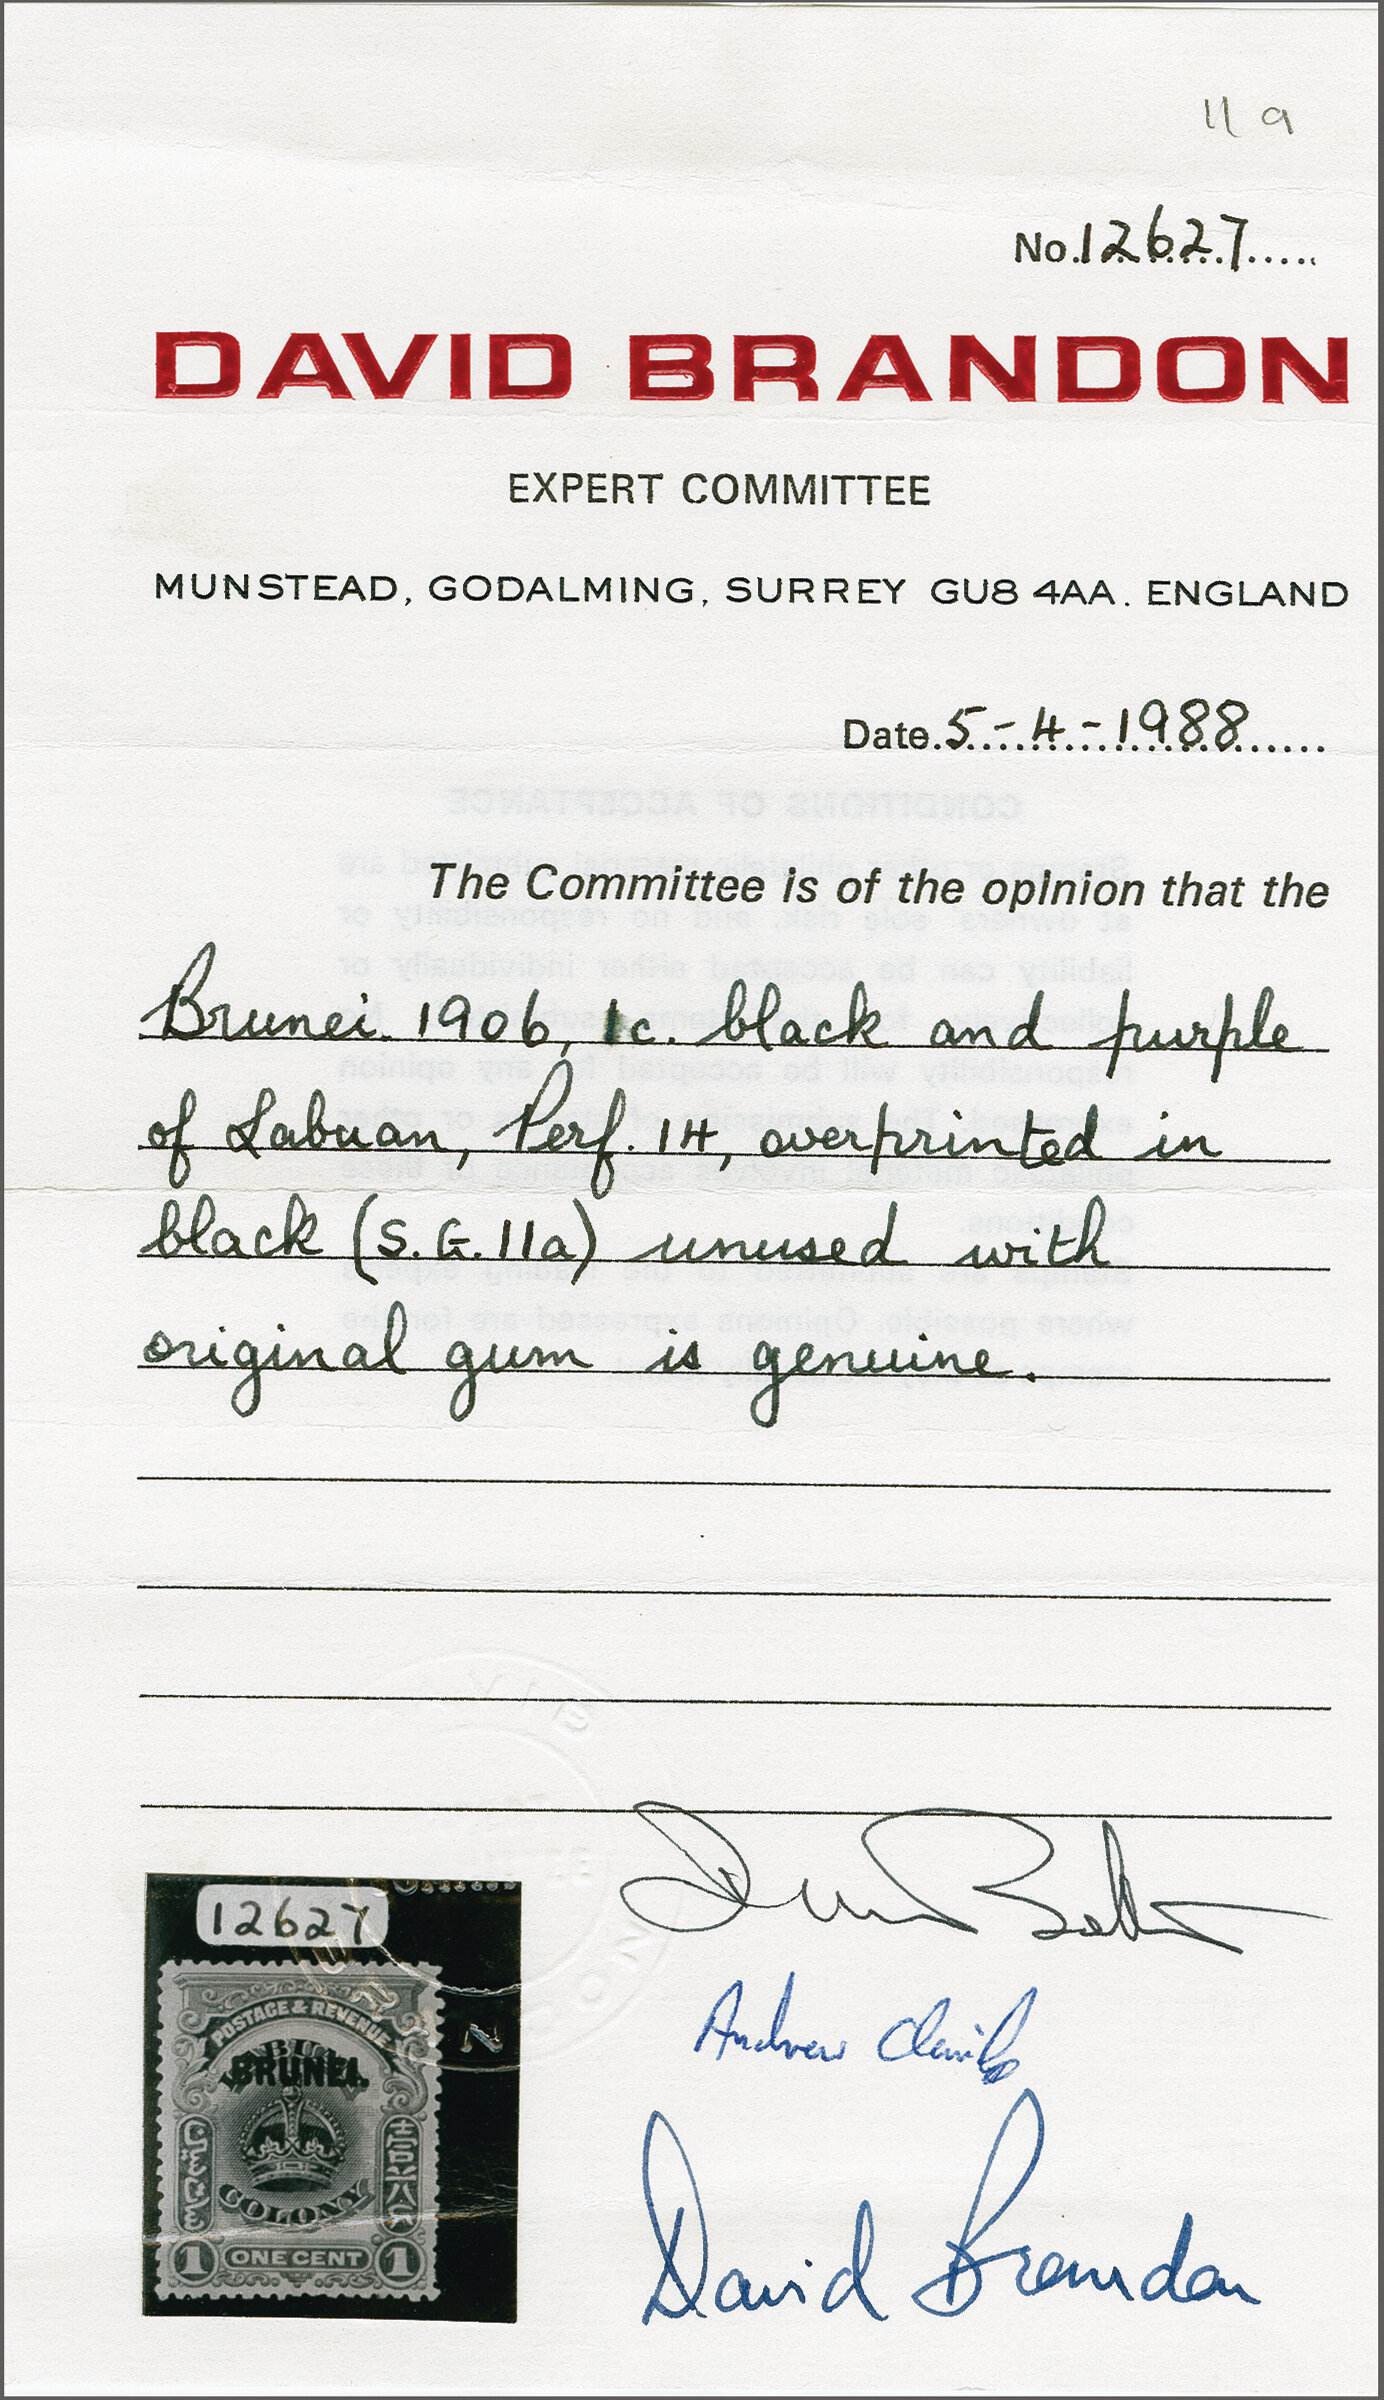 11a
No. 12627
DAVID BRANDON
EXPERT COMMITTEE
MUNSTEAD, GODALMING, SURREY GU8 4AA. ENGLAND
Date. 5-4-1988
CONDITIONS OF ACCEPTANCE
The Committee is of the opinion that the
Brunei. 1906, 1c. black and purple
of Labuan, Perf. 14, overprinted in
black (S.G.11a) unused with
original gum is genuine.
12627
POSTAGE & REVENUE
BRUNEI.
COLONY
1 ONE CENT 1
Andrew
David Brandon